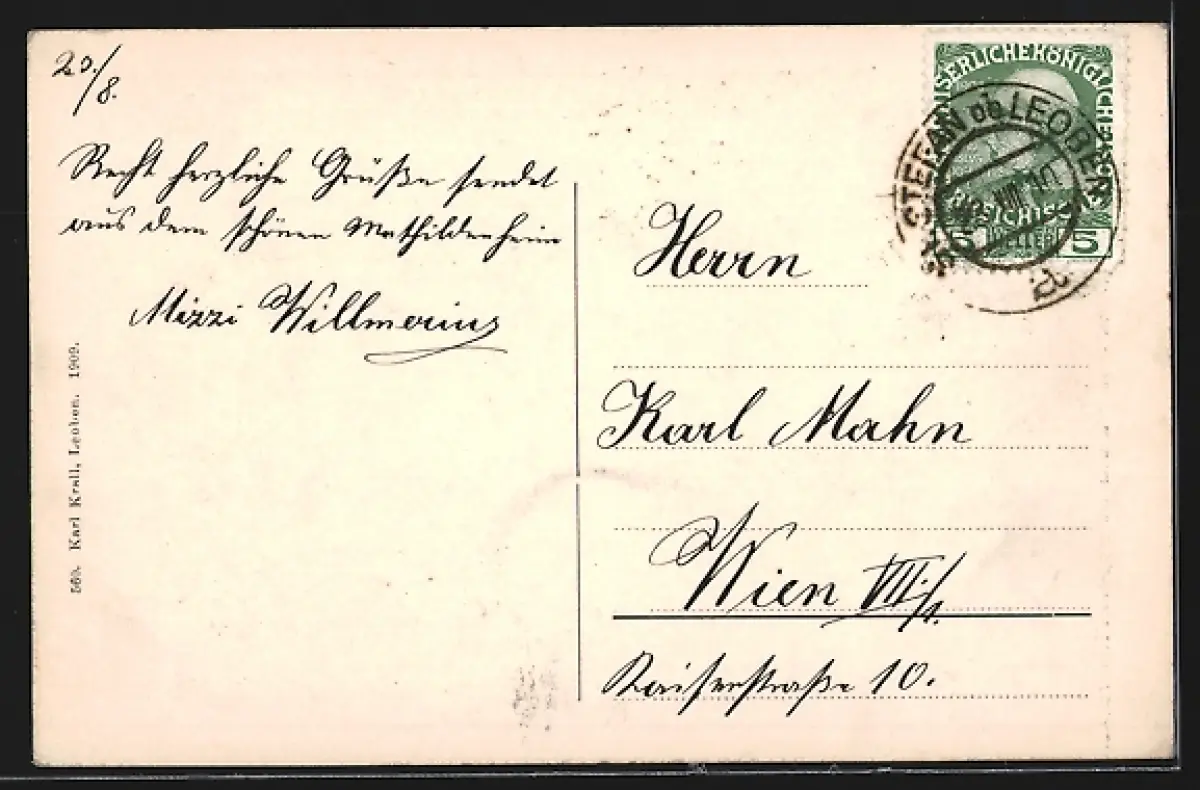 20./8.
Recht herzliche Grüße sendet
aus dem schönen Mathildenheim
Mizzi
569. Karl Krall, Leoben. 1909.
KAISERLICHEKÖNIGLICHE
5 HELLER 5
ST. STEFAN ob LEOBEN
VIII 10
Herrn
Karl Mahn
Wien VII./1.
Kaiserstraße 10.